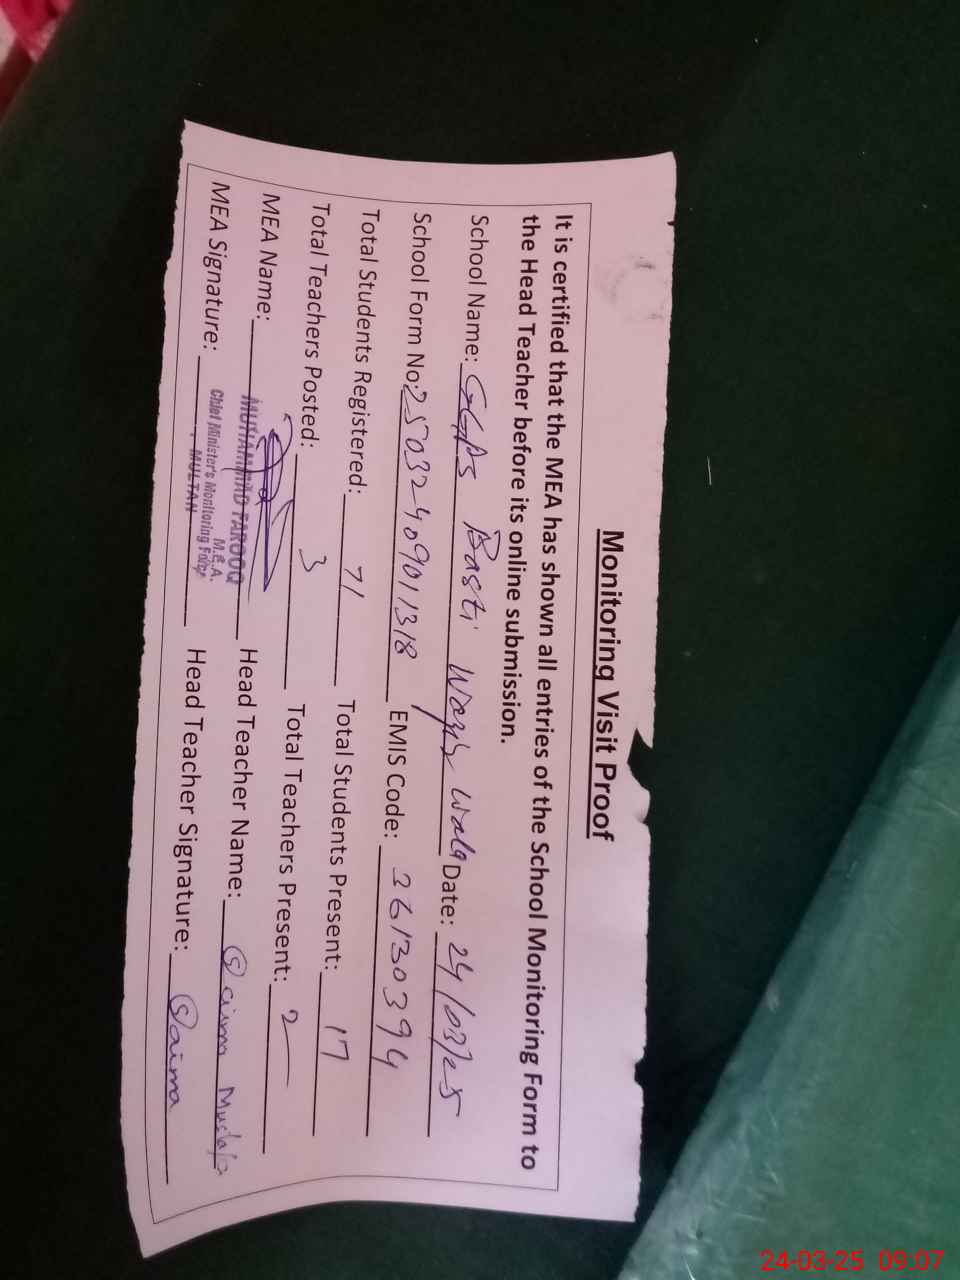 Monitoring Visit Proof
It is certified that the MEA has shown all entries of the School Monitoring Form to
the Head Teacher before its online submission.
School Name: GGPS Basti Wazir Wala Date: 24/03/25
School Form No: 25032409011318 EMIS Code: 36130394
Total Students Registered: 71 Total Students Present: 17
Total Teachers Posted: 3 Total Teachers Present: 2
MEA Name: MUHAMMAD FAROOQ Head Teacher Name: Saima Mustafa
M.E.A.
Chief Minister's Monitoring Force
MULTAN
MEA Signature: Head Teacher Signature: Saima
24-03-25 09:07